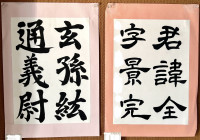 君諱全
字景完
玄孫紘
通義尉